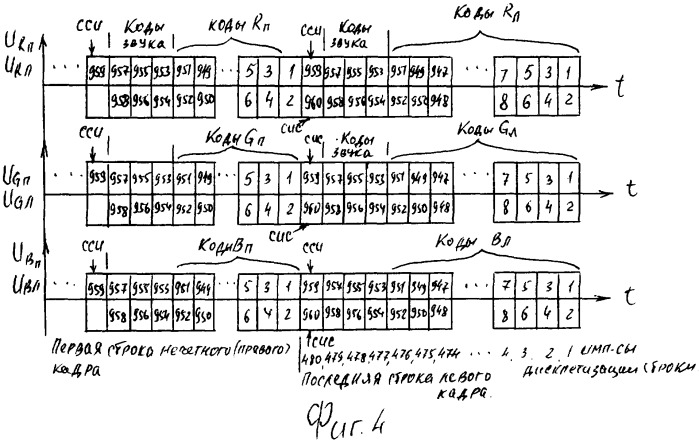 ССИ Коды звука Коды Rп ССИ Коды звука Коды Rл
URп
URл
... 959 957 955 953 951 949 ... 5 3 1 959 957 955 953 951 949 947 ... 7 5 3 1
958 956 954 952 950 6 4 2 960 958 956 954 952 950 948 8 6 4 2
t
СИС
ССИ Коды Gп ССИ Коды звука Коды Gл
UGп
UGл
... 959 957 955 953 951 949 ... 5 3 1 959 957 955 953 951 949 947 ... 7 5 3 1
958 956 954 952 950 6 4 2 960 958 956 954 952 950 948 8 6 4 2
t
СИС
ССИ Коды Вп ССИ Коды Вл
UВп
UВл
... 959 957 955 953 951 949 ... 5 3 1 959 957 955 953 951 949 947 ... 7 5 3 1
958 956 954 952 950 6 4 2 960 958 956 954 952 950 948 8 6 4 2
t
СИС
Первая строка нечетного (правого) кадра
480, 479, 478, 477, 476, 475, 474 ... 4, 3, 2, 1 имп-сы дискретизации строки
Последняя строка левого кадра.
Фиг. 4